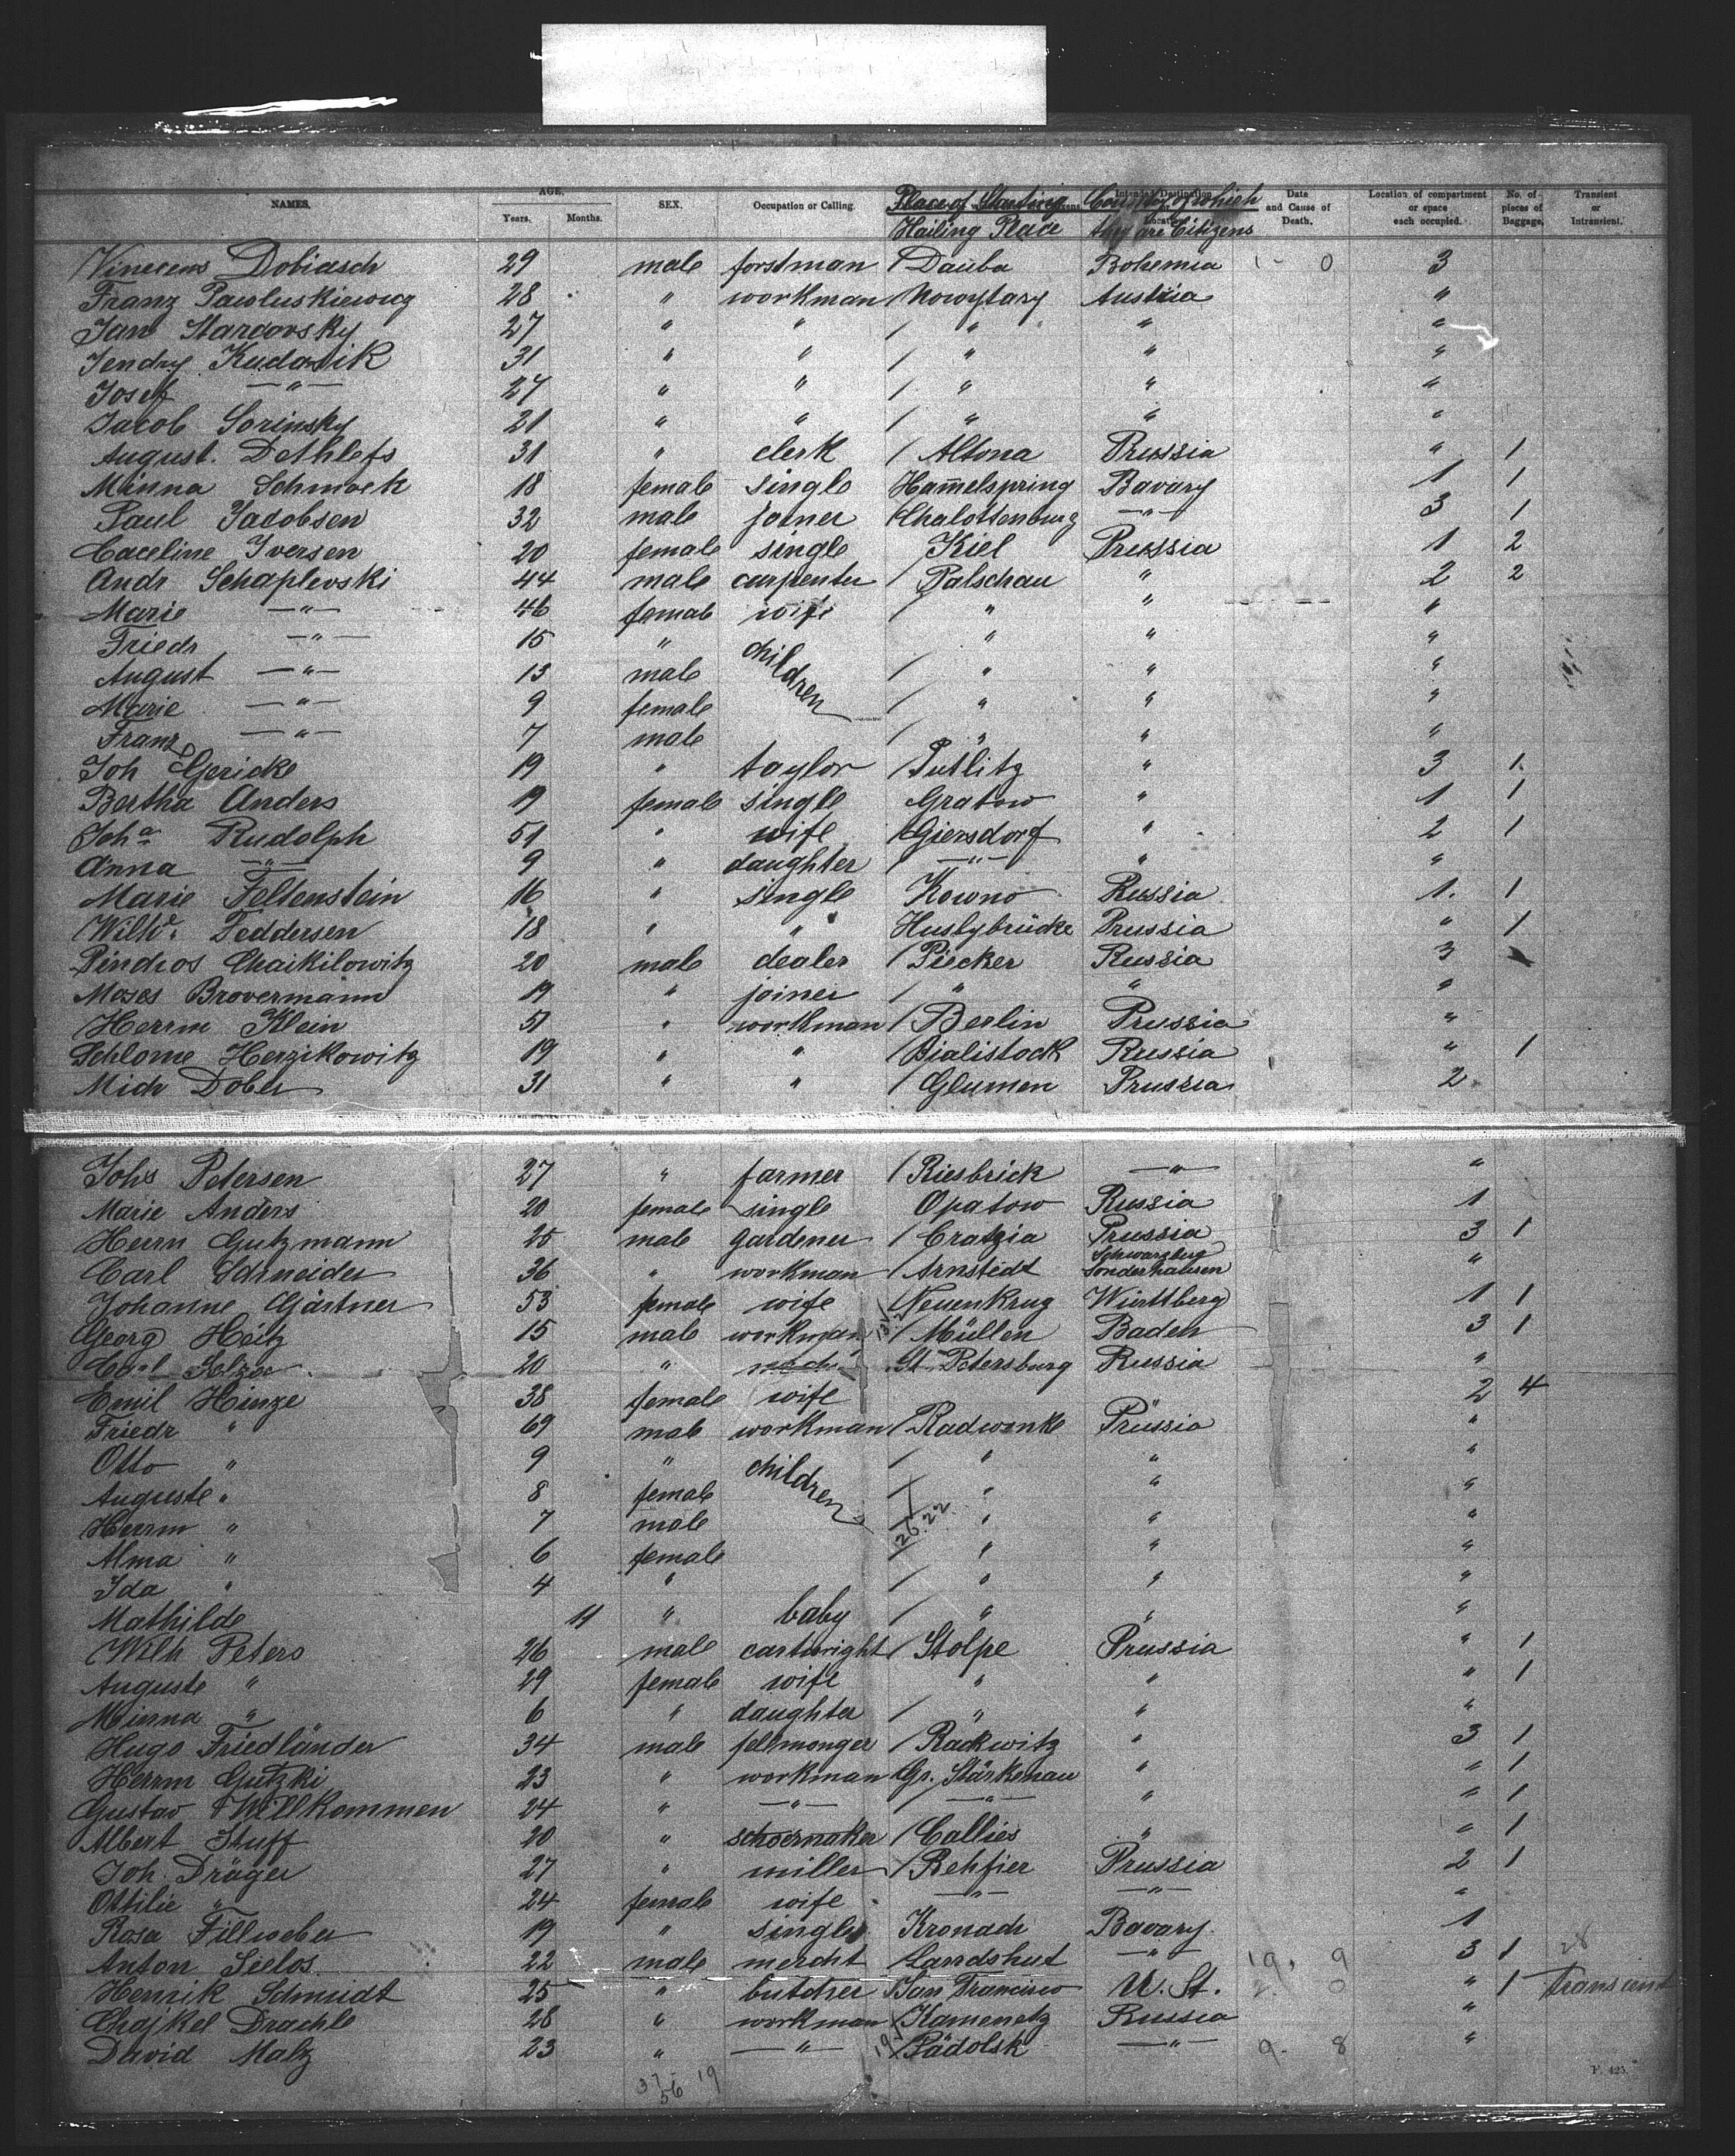 NAMES. AGE. Years. Months. SEX. Occupation or Calling. Place of Starting Hailing Place Country of which they are Citizens Date and Cause of Death. Location of compartment or space each occupied. No. of pieces of Baggage. Transient or Intransient.
Dobiasch 29 male forstman Dauba Bohemia 1 - 0 3
Franz Pawluskiewicz 28 " workman Nowytary Austria "
Jan 27 " " " " "
Jendry Kudasik 31 " " " " "
Josef —"— 27 " " " " "
Jacob Sorinsky 21 " " " " "
August. Dethlefs 31 " clerk Altona Prussia " 1
Minna Schmock 18 female single Hamelspring Bavary 1 1
Paul Jacobsen 32 male joiner Chalottenburg —"— 3 1
Caceline Iversen 20 female single Kiel Prussia 1 2
Andr Schaplevski 44 male carpenter Palschau " 2 2
Marie —"— 46 female wife " " "
Friedr —"— 15 " children " " "
August —"— 13 male " " "
Marie —"— 9 female " " "
Franz —"— 7 male " " "
Joh Gericke 19 " taylor Putlitz " 3 1.
Bertha Anders 19 female single Grabow " 1 1
Joha Rudolph 51 " wife Giersdorf " 2 1
Anna —"— 9 " daughter —"— " "
Marie Feltenstein 16 " single Kowno Russia 1. 1
Wilh. Feddersen 18 " " Huslybrücke Prussia " 1
Pindros Chaikilowitz 20 male dealer Piecker Russia 3
Moses Brovermann 19 " joiner " " "
Herrm Klein 51 " workman Berlin Prussia "
Schlome Herzikowitz 19 " " Bialistock Russia " 1
Mich Dober 31 " " Glumen Prussia 2.
Johs Petersen 27 " farmer Riesbrick —"— "
Marie Anders 20 female single Opatow Russia 1
Herrn Gutzmann 25 male gardener Cratzia Prussia 3 1
Carl Schneider 36 " workman Arnstedt Schwarzberg Sonderhausen "
Johanne Gärtner 53 female wife Neuenkrug Württberg 1 1
Georg Heitz 15 male workman Müllen Baden 3 1
20 " St. Petersburg Russia "
Emil Hinze 38 female wife 2 4
Friedr " 69 male workman Radwonke Prüssia "
Otto " 9 " children " " "
Auguste " 8 female " " "
Herrm " 7 male 26.22 " " "
Alma " 6 female " " "
Ida " 4 " " " "
Mathilde 11 " baby " " "
Wilh Peters 26 male cartwright Stolpe Prussia " 1
Auguste " 29 female wife " " " 1
Minna " 6 " daughter " " "
Hugo Friedländer 34 male fellmonger Rackwitz " 3 1
Herrm Gutzki 23 " workman Gr. Stärkenau " " 1
Gustav Willkommen 24 " —"— —"— " " 1
Albert Stuff 20 " schoernaker Callies " " 1
Joh. Dräger 27 " miller Behfier Prussia 2 1
Ottilie " 24 female wife —"— —"— "
Rosa Fillweber 19 " single Kronach Bavary. 1
Anton Sielos 22 male mercht Landshut —"— 19. 9 3 1 28
Henrik Schmidt 25 " butcher San Francisco U. St. 2. 0 " 1 transient
Chajkel Drachle 28 " workman Kamenetz Russia "
David Malz 23 " —"— 19 Pädolsk —"— 9- 8 "
37 56 19
P. 425.